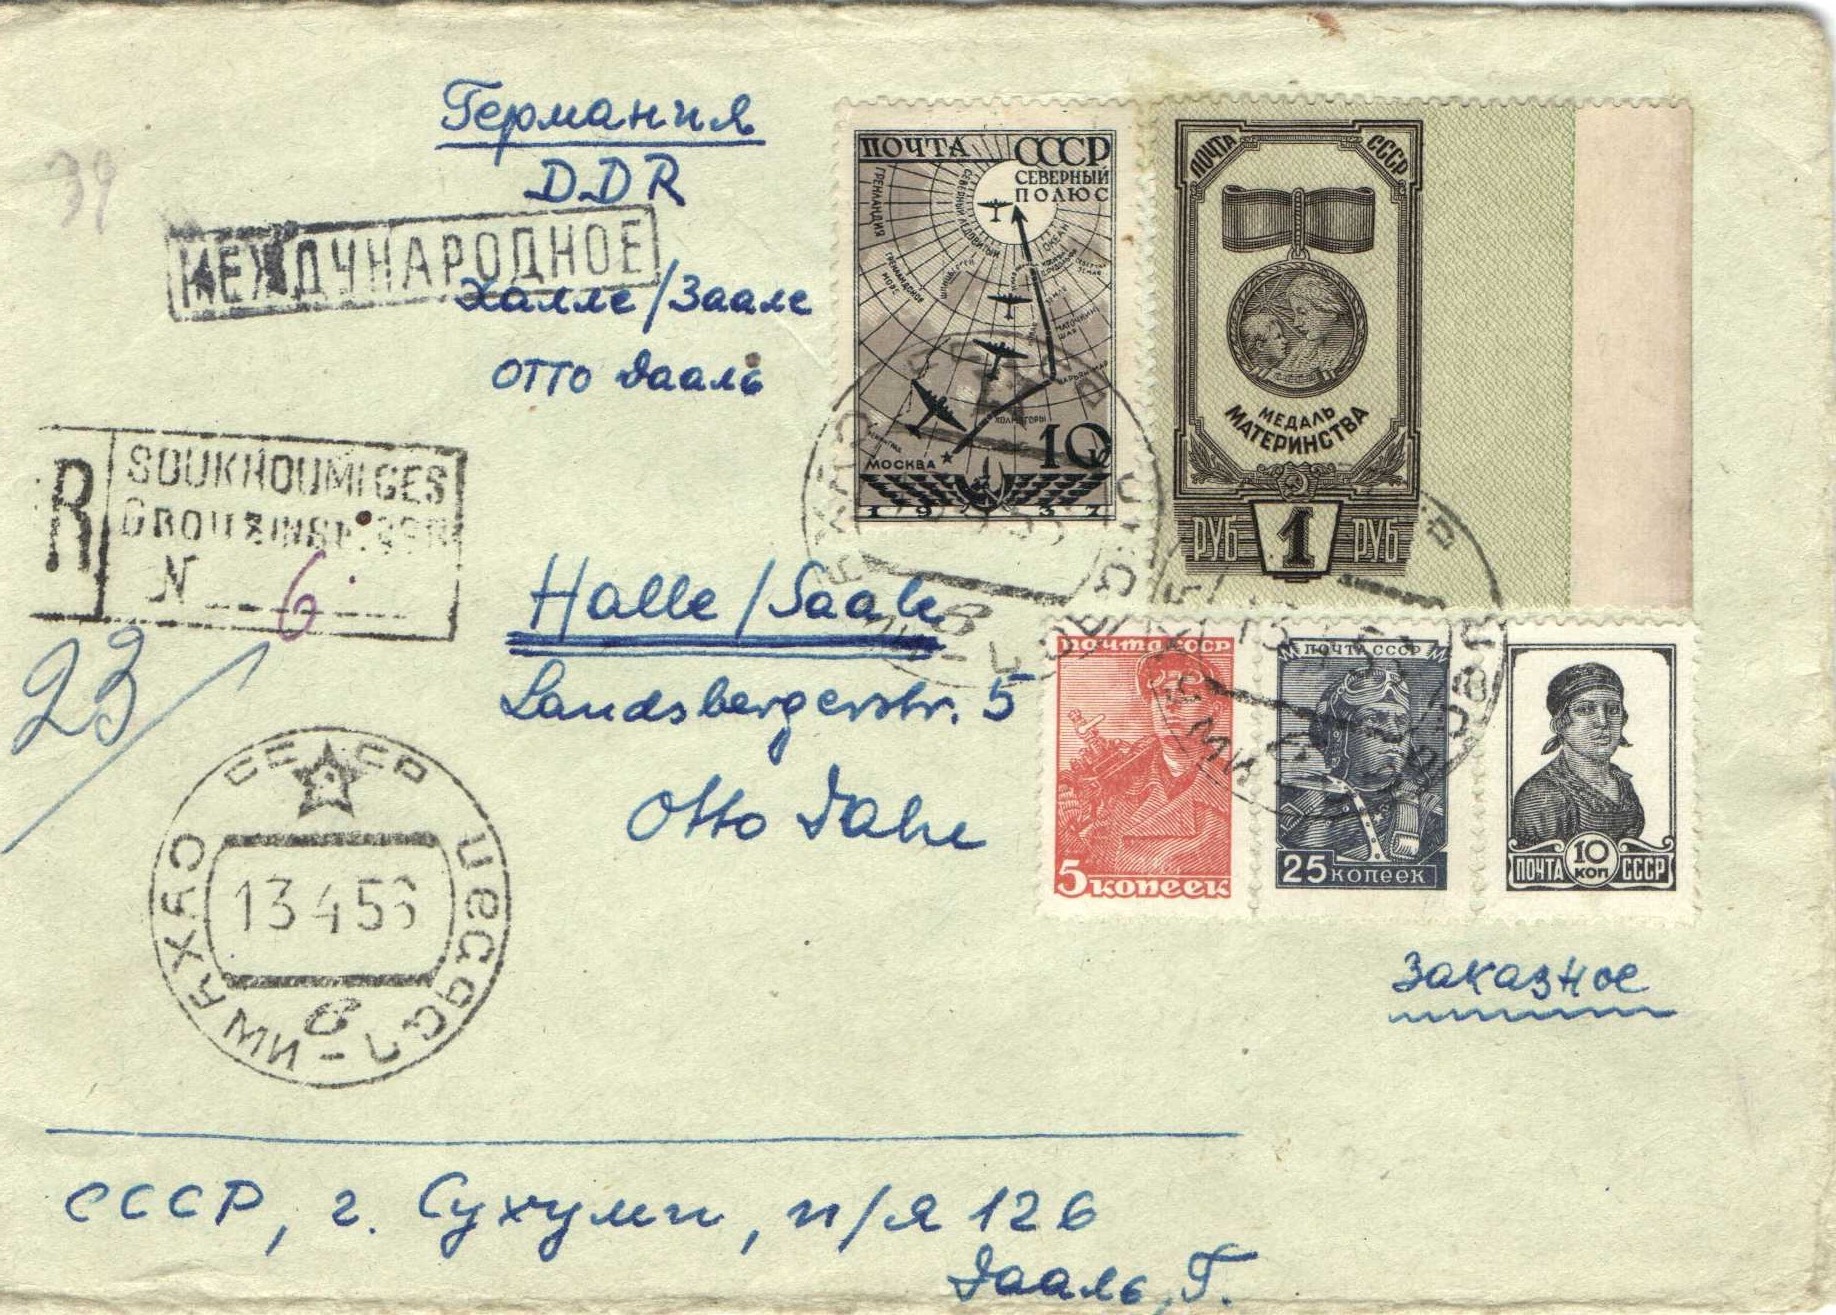 Германия
DDR
МЕЖДУНАРОДНОЕ
Халле/Заале
ОТТО Дааль
39
R
SOUKHOUMI GES
GROUZINSK. SSR
N 6
23
Halle/Saale
Landsbergerstr. 5
Otto Dahl
ПОЧТА СССР
СЕВЕРНЫЙ
ПОЛЮС
ГРЕНЛАНДИЯ
МОСКВА
ХОЛМОГОРЫ
10 К
1937
ПОЧТА СССР
МЕДАЛЬ
МАТЕРИНСТВА
РУБ 1 РУБ
ПОЧТА СССР
5 КОПЕЕК
ПОЧТА СССР
25 КОПЕЕК
ПОЧТА 10 КОП СССР
СССР
13 4 56
в
Заказное
СССР, г. Сухуми, п/я 126
Дааль, Г.